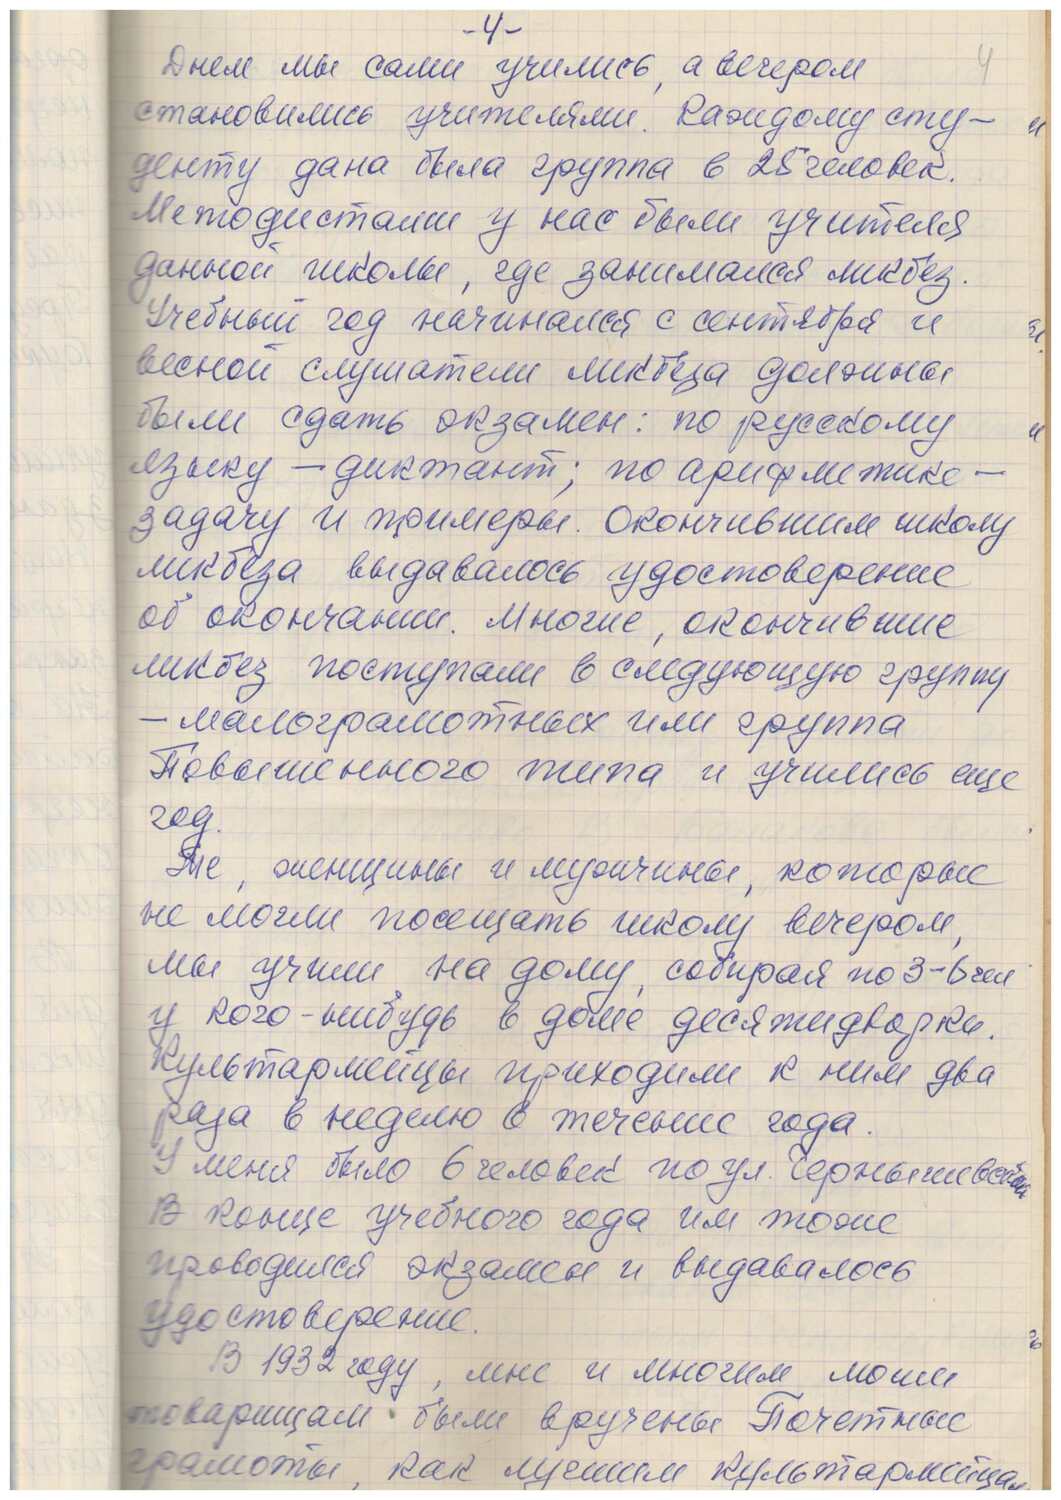 -4-
4
Днем мы сами учились, а вечером
становились учителями. Каждому сту-
денту дана была группа в 25 человек.
Методистами у нас были учителя
данной школы, где занимался ликбез.
Учебный год начинался с сентября и
весной слушатели ликбеза должны
были сдать экзамен: по русскому
языку — диктант; по арифметике —
задачу и примеры. Окончившим школу
ликбеза выдавалось удостоверение
об окончании. Многие, окончившие
ликбез поступали в следующую группу
— малограмотных или группа
Повышенного типа и учились еще
год.
Те, женщины и мужчины, которые
не могли посещать школу вечером,
мы учили на дому, собирая по 3-6 чел
у кого-нибудь в доме десятидворки.
Культармейцы приходили к ним два
раза в неделю в течение года.
У меня было 6 человек по ул. Чернышевской
В конце учебного года им тоже
проводился экзамен и выдавалось
удостоверение.
В 1932 году, мне и многим моим
товарищам были вручены Почетные
грамоты, как лучшим культармейцам